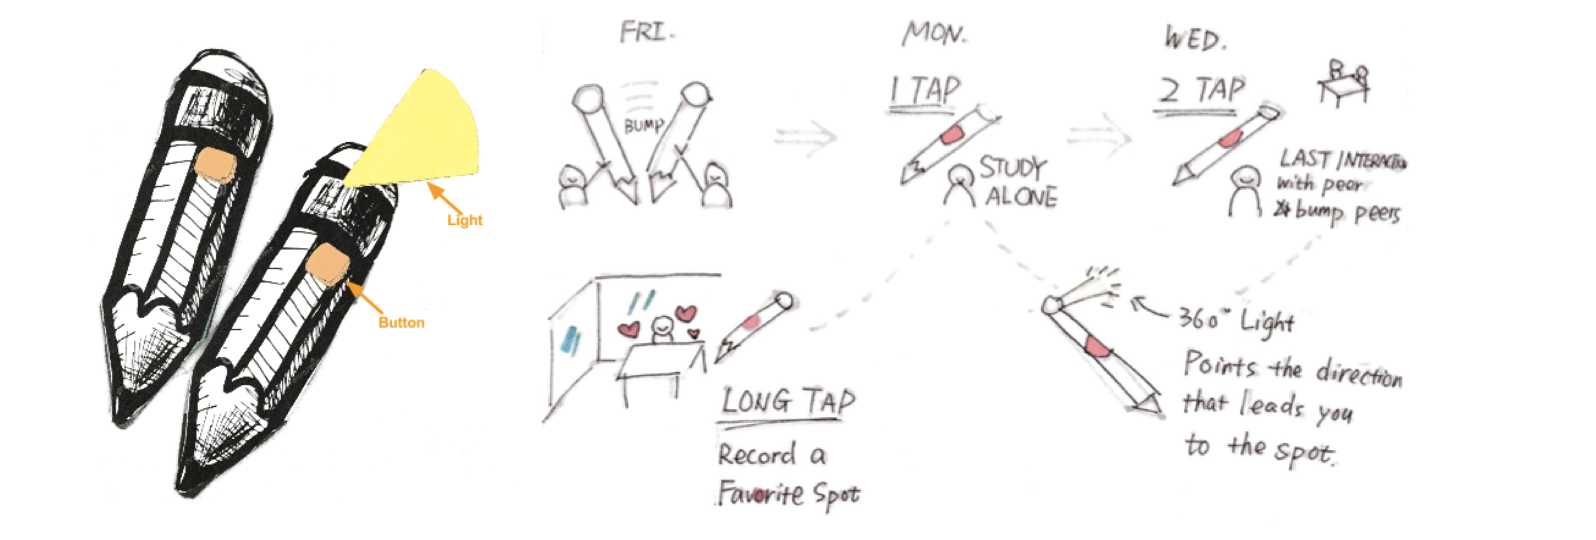 Light
Button
FRI.
BUMP
MON.
1 TAP
STUDY
ALONE
WED.
2 TAP
LAST INTERACTION
with peer
bump peers
LONG TAP
Record a
Favorite Spot
360° Light
Points the direction
that leads you
to the spot.